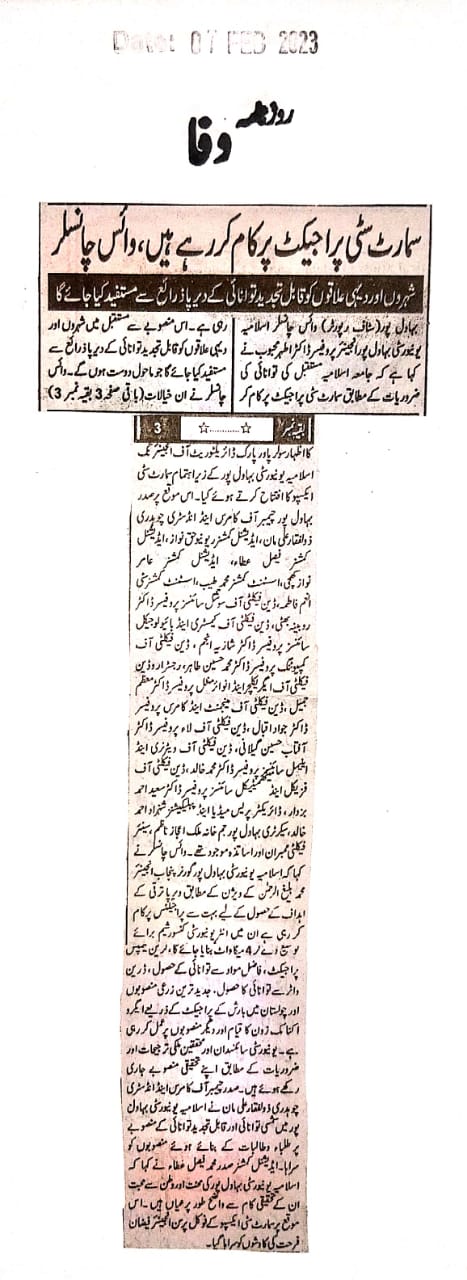 Date: 07 FEB 2023
روزنامہ
وفا
سمارٹ سٹی پراجیکٹ پر کام کر رہے ہیں، وائس چانسلر
شہروں اور دیہی علاقوں کو قابل تجدید توانائی کے دیرپا ذرائع سے مستفید کیا جائے گا
بہاول پور (سٹاف رپورٹر) وائس چانسلر اسلامیہ
یونیورسٹی بہاول پور انجینئر پروفیسر ڈاکٹر اطہر محبوب نے
کہا ہے کہ جامعہ اسلامیہ مستقبل کی توانائی کی
ضروریات کے مطابق سمارٹ سٹی پراجیکٹ پر کام کر
رہی ہے۔ اس منصوبے سے مستقبل میں شہروں اور
دیہی علاقوں کو قابل تجدید توانائی کے دیرپا ذرائع سے
مستفید کیا جائے گا جو ماحول دوست ہوں گے۔ وائس
چانسلر نے ان خیالات (باقی صفحہ 3 بقیہ نمبر 3)
بقیہ نمبر ☆............☆ 3
کا اظہار سولر پاور پارک ڈائریکٹوریٹ آف انجینئرنگ
اسلامیہ یونیورسٹی بہاول پور کے زیر اہتمام سمارٹ سٹی
ایکسپو کا افتتاح کرتے ہوئے کیا۔ اس موقع پر صدر
بہاول پور چیمبر آف کامرس اینڈ انڈسٹری چوہدری
ذوالفقار علی مان، ایڈیشنل کمشنر ریونیو حق نواز، ایڈیشنل
کمشنر فیصل عطاء، ایڈیشنل کمشنر عامر
نواز کھچی، اسسٹنٹ کمشنر محمد طیب، اسسٹنٹ کمشنر سٹی
انعم فاطمہ، ڈین فیکلٹی آف سوشل سائنسز پروفیسر ڈاکٹر
روبینہ بھٹی، ڈین فیکلٹی آف کیمسٹری اینڈ بائیولوجیکل
سائنسز پروفیسر ڈاکٹر شازیہ انجم، ڈین فیکلٹی آف
کمپیوٹنگ پروفیسر ڈاکٹر محمد حسین طاہر، رجسٹرار و ڈین
فیکلٹی آف ایگریکلچر اینڈ انوائرمنٹل پروفیسر ڈاکٹر معظم
جمیل، ڈین فیکلٹی آف مینجمنٹ اینڈ کامرس پروفیسر
ڈاکٹر جواد اقبال، ڈین فیکلٹی آف لاء پروفیسر ڈاکٹر
آفتاب حسین گیلانی، ڈین فیکلٹی آف ویٹرنری اینڈ
اینیمل سائنسز پروفیسر ڈاکٹر محمد خالد، ڈین فیکلٹی آف
فزیکل اینڈ میتھمیٹیکل سائنسز پروفیسر ڈاکٹر سعید احمد
بزدار، ڈائریکٹر پریس میڈیا اینڈ پبلیکیشنز شہزاد احمد
خالد، سیکرٹری بہاول پور جم خانہ ملک اعجاز ناظم، سینئر
فیکلٹی ممبران اور اساتذہ موجود تھے۔ وائس چانسلر نے
کہا کہ اسلامیہ یونیورسٹی بہاول پور گورنر پنجاب انجینئر
محمد بلیغ الرحمٰن کے ویژن کے مطابق دیرپا ترقی کے
اہداف کے حصول کے لیے بہت سے پراجیکٹس پر کام
کر رہی ہے ان میں انٹر یونیورسٹی کنسورشیم برائے
توسیع دے کر 4 میگاواٹ بنایا جائے گا، گرین کیمپس
پراجیکٹ، فاضل مواد سے توانائی کے حصول، ڈرین
واٹر سے توانائی کا حصول، جدید ترین زرعی منصوبوں
اور چولستان میں بارش کے پراجیکٹ کے ذریعے ایگرو
اکنامک زون کا قیام اور دیگر منصوبوں پر عمل کر رہی
ہے۔ یونیورسٹی سائنسدان اور محققین ملکی ترجیحات اور
ضروریات کے مطابق اپنے تحقیقی منصوبے جاری
رکھے ہوئے ہیں۔ صدر چیمبر آف کامرس اینڈ انڈسٹری
چوہدری ذوالفقار علی مان نے اسلامیہ یونیورسٹی بہاول
پور میں شمسی توانائی اور قابل تجدید توانائی کے منصوبے
پر طلباء و طالبات کے بنائے ہوئے منصوبوں کو
سراہا۔ ایڈیشنل کمشنر صدر محمد فیصل عطاء نے کہا کہ
اسلامیہ یونیورسٹی بہاول پور کی محنت اور وطن سے محبت
ان کے تحقیقی کام سے واضح طور پر عیاں ہیں۔ اس
موقع پر سمارٹ سٹی ایکسپو کے فوکل پرسن انجینئر فیضان
فرحت کی کاوشوں کو سراہا گیا۔